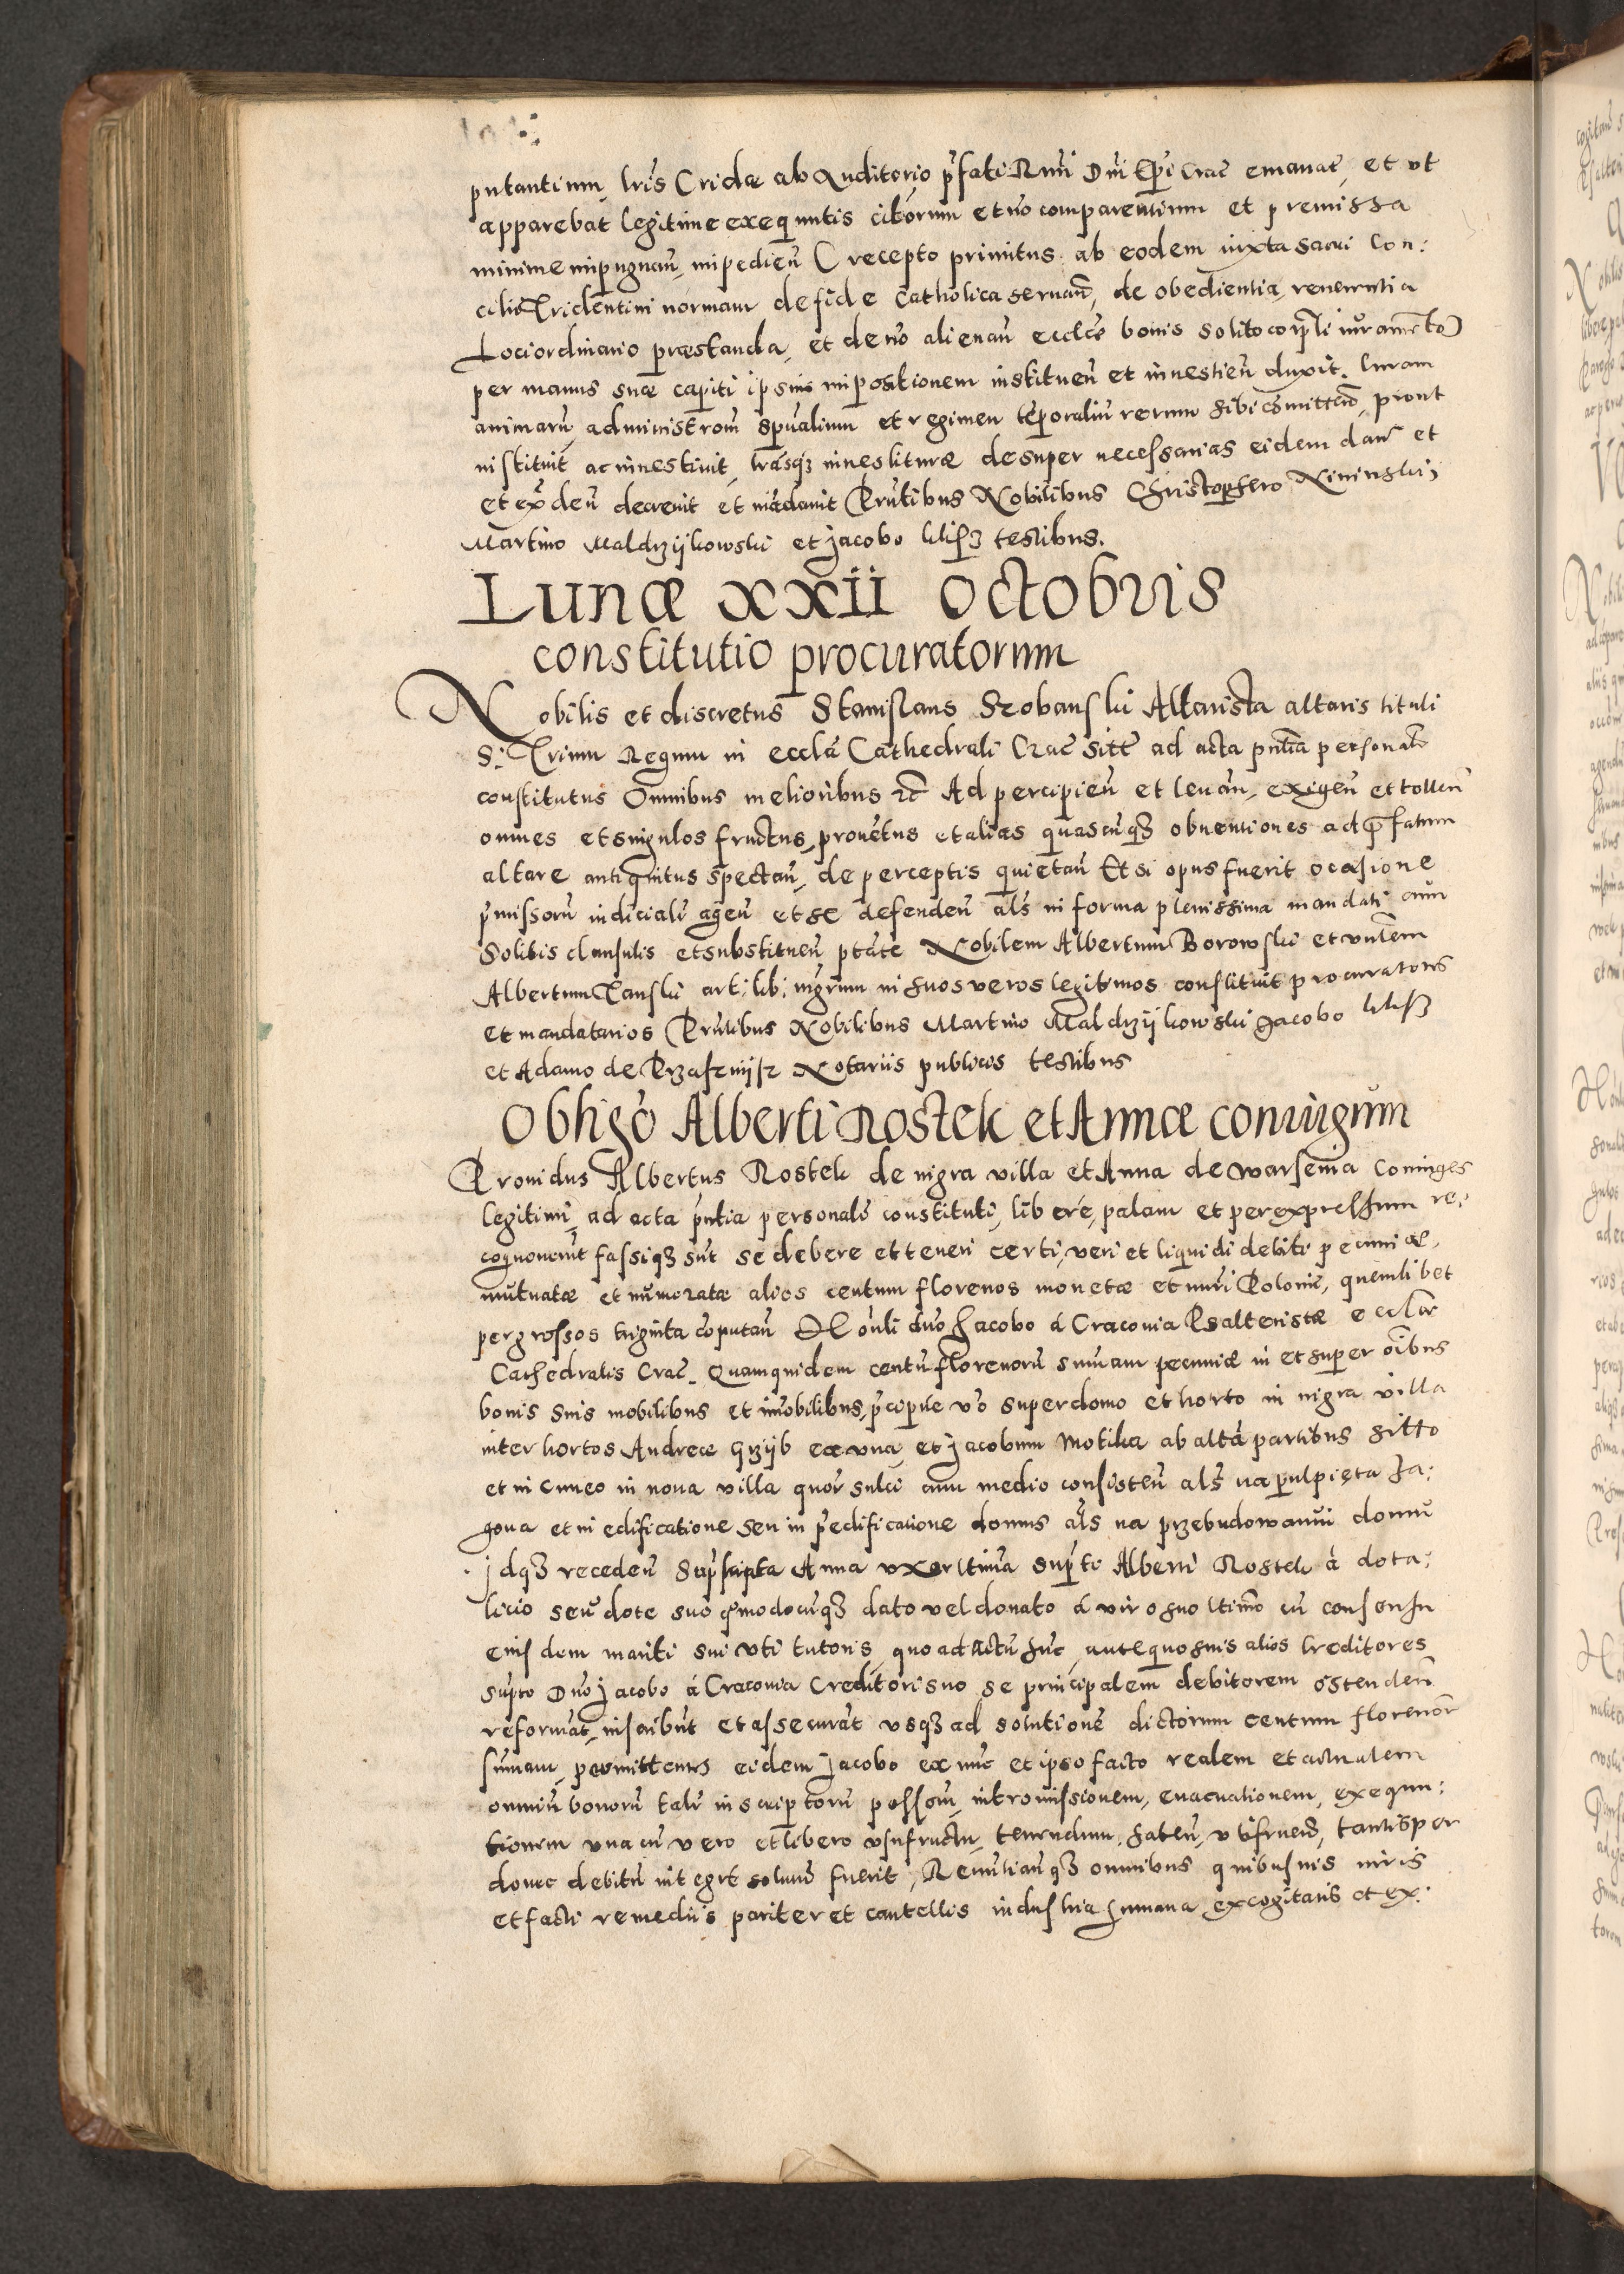 putantium, lrīs Cridæ ab Auditorio p̄fati Rmī Dnī Epī Crac̄ emanat̄, et vt
apparebat legitime exequutis citōrum et nō comparentium et premissa
minime impugnan̄, impedien̄ (recepto primitus ab eodem iuxta sacri Con:
cilii Tridentini normam de fide Catholica seruan̄, de obedientia, reuerentia
Loci ordinario præstanda, et de nō alienan̄ eccleīe bonis solito corp̄li iuramēto)
per manus suæ capiti ipsius impositionem instituen̄ et inuestien̄ duxit. Curam
animarū, administrōm spūalium et regimen tēporaliū rerum sibi cōmittēd, prout
instituit ac inuestiuit, lrasqꝫ inuestituræ desuper necessarias eidem dari et
et exōden̄ decreuit et mādauit Prn̄tibus Nobilibus Christophero Nininskij
Martino Maldrzijkowski et Jacobo testibus.
Lunæ xxii Octobris
constitutio procuratorum
Nobilis et discretus Stanislaus Szobanski Altarista altaris tituli
S: Trium Regum in eccl̄a Cathedrali Crac̄ sitt̄ ad acta pn̄tia personalr̄
constitutus Omnibus melioribus etc̄ Ad percipien̄ et leuan̄, exigen̄ et tollen̄
omnes et singulos fructus, prouētus et alias quascūqꝫ obuentiones ad p̄fatum
altare antiquitus spectan̄, de perceptis quietan̄ Et si opus fuerit ocasione
p̄missorū iudicialr̄ agen̄ et se defenden̄ als̄ in forma plenissima mandati cum
Solitis clausulis et substituen̄ ptāte Nobilem Albertum Borowski et vn̄lem
Albertum Tanski art: lib: mgrum in suos veros legitimos constituit procuratores
et mandatarios Prn̄tibus Nobilibus Martino Maldrzijkowski Jacobo
et Adamo de Notariis publicis testibus
Obligō Alberti Rostek et Annæ coniugum
Prouidus Albertus Rostek de nigra villa et Anna de Coniuges
legitimi, ad acta pn̄tia personalr̄ constituti, libere, palam et per expressum re:
cognouerūt fassiqꝫ sūt se debere et teneri certi, veri et liquidi debiti pecuniæ,
mutuatæ et numeratæ alios centum florenos monetæ et nūri Polonic̄, quemlibet
per grossos triginta cōputan̄ Hōnli dn̄o Jacobo á Cracouia Psalteristæ eccl̄iæ
Cathedralis Crac̄. Quamquidem centū florenorū summam pecuniæ in et super oībus
bonis suis mobilibus et imobilibus, p̄cipue vō super domo et horto in nigra villa
inter hortos Andreæ Grzijb ex vna, et Jacobum Motika ab altā partibus sitto
et in cuneo in noua villa quor̄ sulci cum medio consisten̄ als̄ na pulpięta Za:
gona et in edificatione seu in p̄edificatione domus als̄ na przebudowaniu domu
jdqꝫ receden̄ Anna vxor ltima sup̄ti Alberti Rostek á dota:
licio seu dote suo q̄modocūqꝫ dato vel donato á viro suo ltimo cū consensu
eiusdem mariti sui vti tutoris, quo ad actū hūc, antequo suis alios Creditores
supto Dn̄o Jacobo á Cracouia Creditori suo se principalem debitorem ostenden̄
reformāt, inscribūt et assecurāt vsqꝫ ad solutionē dictorum centum florenor̄
summam, permittentes eidem Jacobo ex nūc et ipso facto realem et actualem
omniū bonorū talr̄ inscriptorū possōm, intromissionem, euacuationem, exequu:
tionem vna cū vero et libero vsufructu, tenendum, haben̄, vtifruend, tantisper
donec debitū integrē solutū fuerit, Renūtianqꝫ omnibus quibusuis iuris
et facti remediis pariter et cautellis industria humana excogitatis et ex: